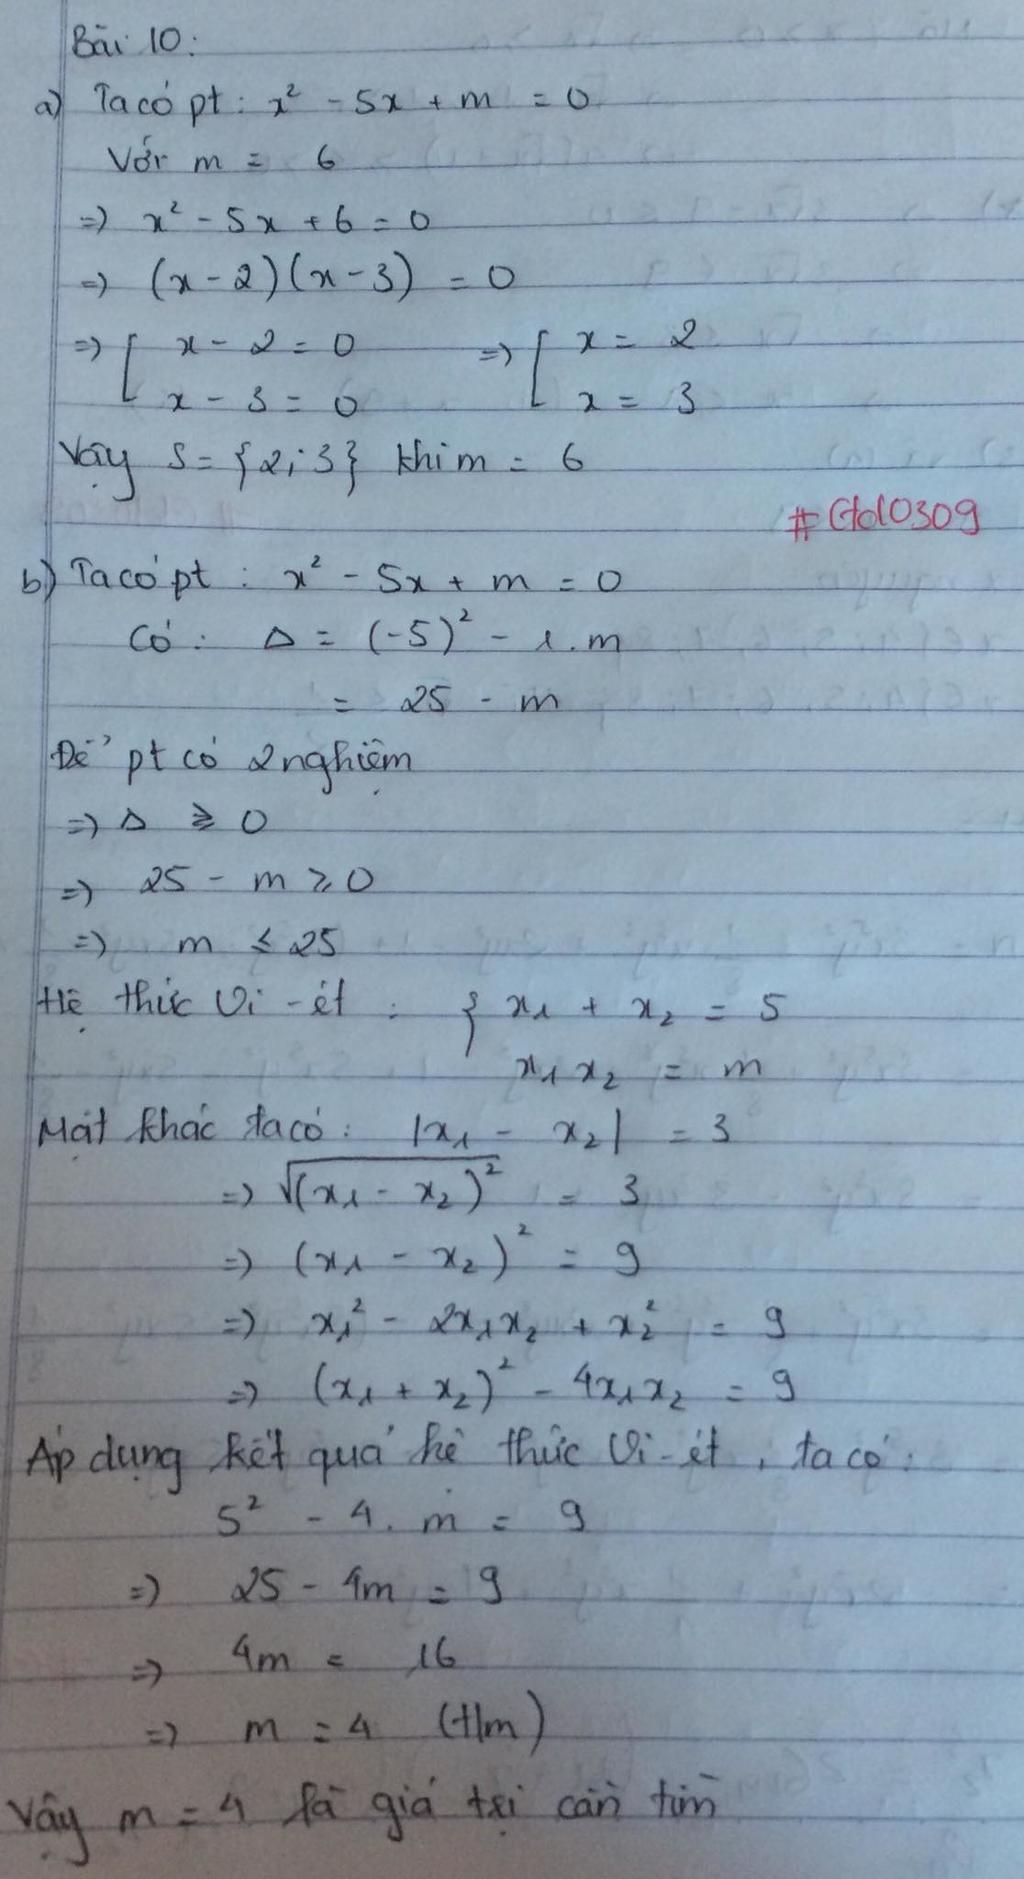 Bài 10:
a) Ta có pt: x² - 5x + m = 0
Với m = 6
=> x² - 5x + 6 = 0
=> (x - 2)(x - 3) = 0
=> [ x - 2 = 0 => [ x = 2
x - 3 = 0 x = 3
Vậy S = {2; 3} khi m = 6
#Gtd0309
b) Ta có pt: x² - 5x + m = 0
Có: Δ = (-5)² - 1.m
= 25 - m
Để pt có 2 nghiệm
=> Δ ≥ 0
=> 25 - m ≥ 0
=> m ≤ 25
Hệ thức Vi-ét: { x₁ + x₂ = 5
x₁x₂ = m
Mặt khác ta có: |x₁ - x₂| = 3
=> √(x₁ - x₂)² = 3
=> (x₁ - x₂)² = 9
=> x₁² - 2x₁x₂ + x₂² = 9
=> (x₁ + x₂)² - 4x₁x₂ = 9
Áp dụng kết quả hệ thức Vi-ét, ta có:
5² - 4.m = 9
=> 25 - 4m = 9
=> 4m = 16
=> m = 4 (t/m)
Vậy m = 4 là giá trị cần tìm